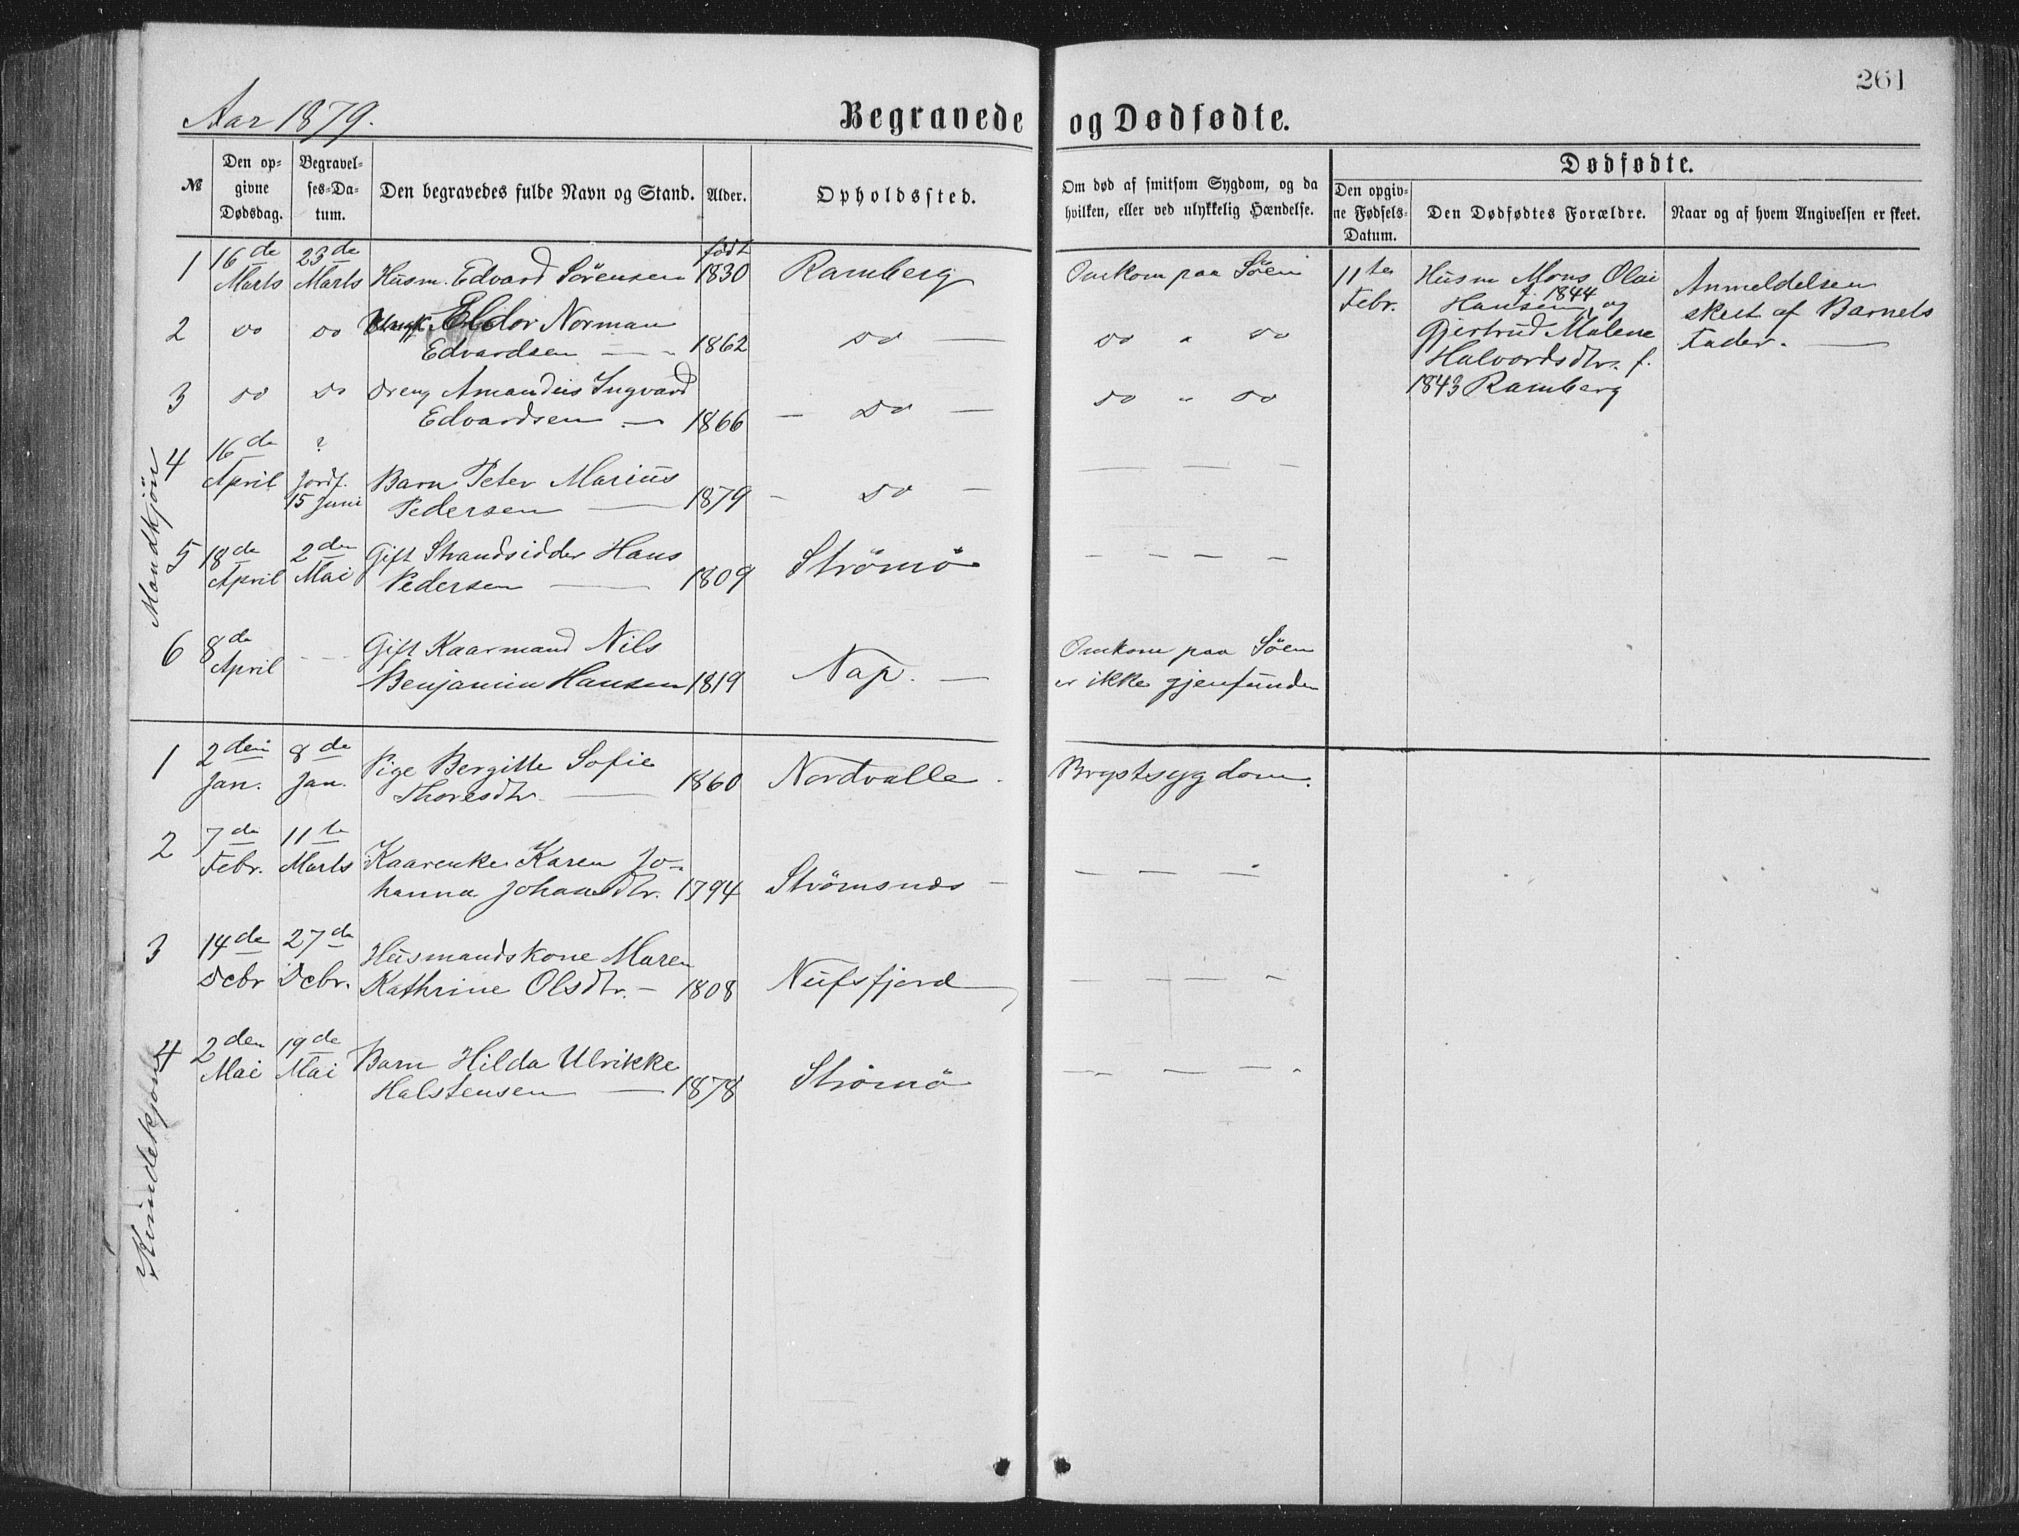 261
Aar 1879.
Begravede og Dødfødte.
№
Den op-
givne
Dødsdag.
Begravel-
ses-Da-
tum.
Den begravedes fulde Navn og Stand.
Alder.
Opholdssted.
Om død af smitsom Sygdom, og da
hvilken, eller ved ulykkelig Hændelse.
Dødfødte.
Den opgiv-
ne Fødsels-
Datum.
Den Dødfødtes Forældre.
Naar og af hvem Angivelsen er skeet.
Mandkjön
1 16de Marts 23de Marts Husm. Edvard Sörensen født 1830 Ramberg Omkom paa Söen
2 do do Eldor Norman
Edvardsen — 1862 do — do " do
3 do do Dreng Amandus Ingvard
Edvardsen — 1866 — do — do " do
4 16de April ? Jordf. 15 Juni Barn Peter Marius
Pedersen — 1879 - do - — — — —
5 18de April 2den Mai Gift Strandsidder Hans
Pedersen — 1809 Strömö — — — —
6 8de April — — Gift Kaarmand Nils
Benjamin Hansen 1819 Nap. — Omkom paa Söen
er ikke gjenfunden
11te
Febr.
Husm Mons Olai
Hansen f. 1844 og
Gjertrud Malene
Halvordsdtr. f.
1843 Ramberg
Anmeldelsen
skeet af Barnets
Fader. —
Kvindekjön
1 2den Jan. 8de Jan. Pige Bergitte Sofie
Thoresdtr. — 1860 Nordvalle. Brystsygdom.
2 7de Febr. 11te Marts Kaarenke Karen Jo-
hanna Johansdtr. 1794 Strömsnæs — — — —
3 14de Dcbr 27de Dcbr. Husmandskone Maren
Kathrine Olsdtr. — 1808 Nufsfjord — — — —
4 2den Mai 19de Mai Barn Hilda Ulrikke
Halstensen — 1878 Strömö — — — —